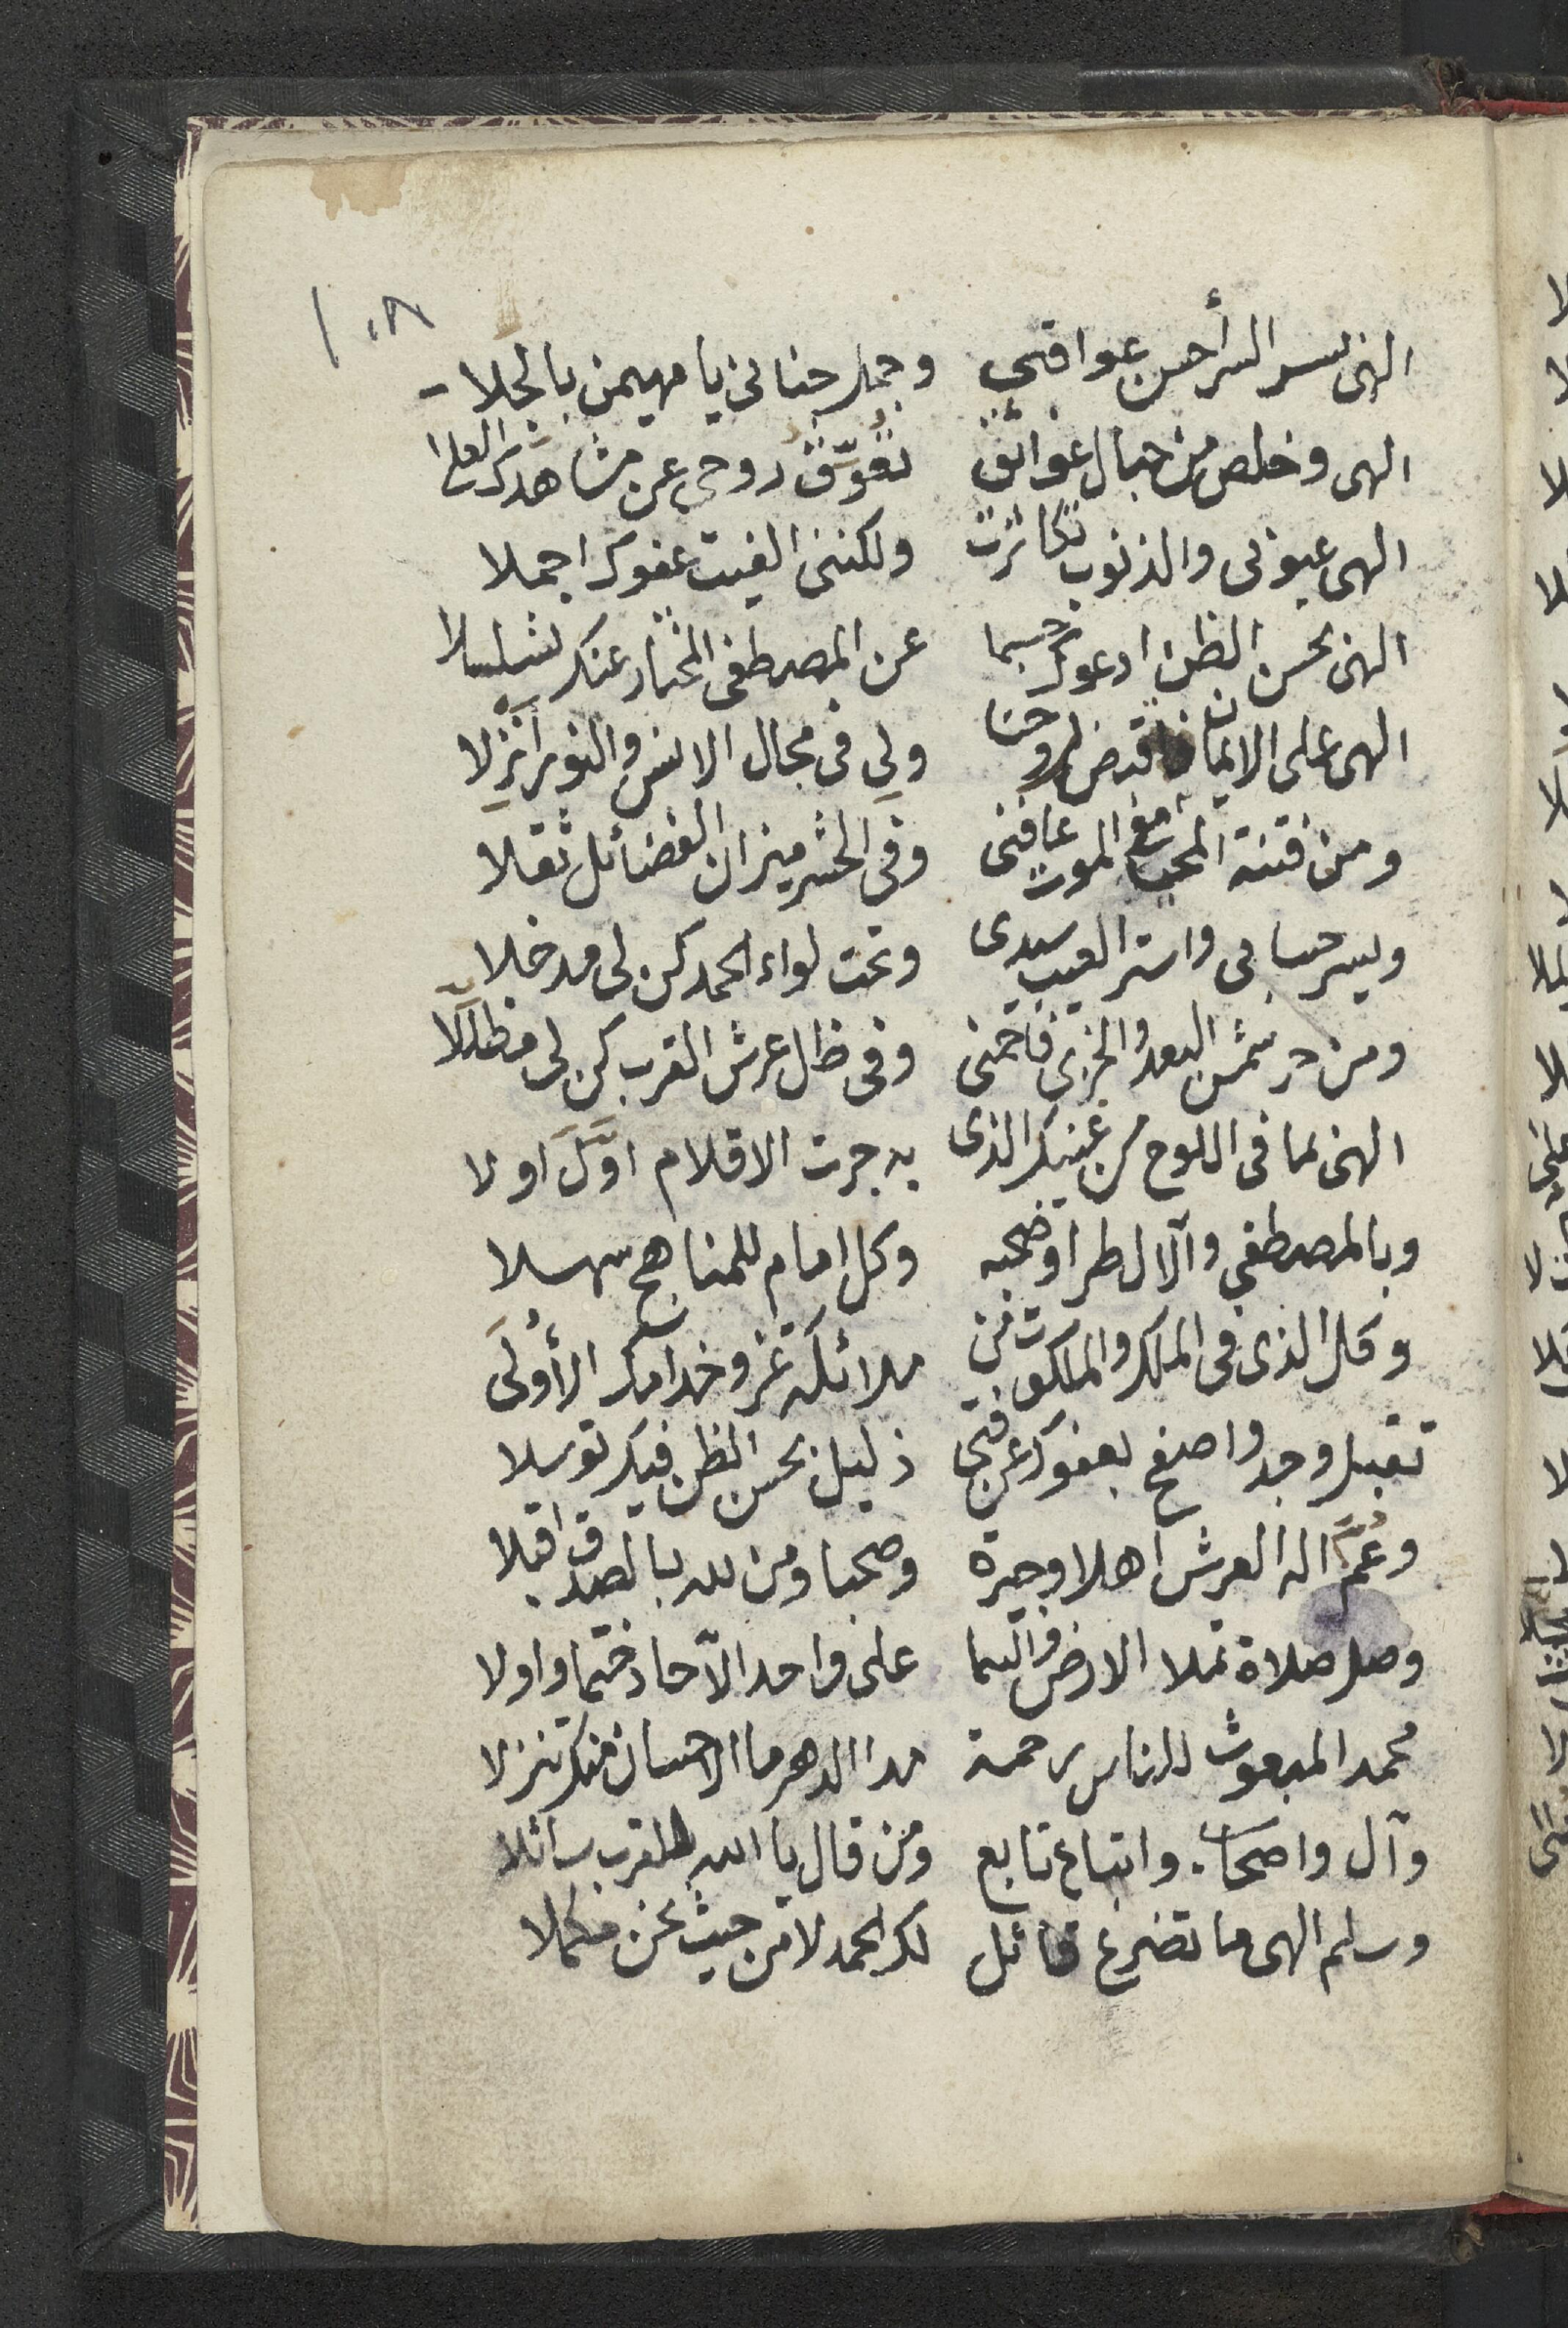 ١٠٨
الهى بسر السر أحسن عواقبى وجمل جنانى يا مهيمن بالجلا
الهى وخلص من حبال عوائق تعوّق روحى عن مشاهدك العلا
الهى عيوبى والذنوب تكاثرت ولكننى الفيت عفوك اجملا
الهى بحسن الظن ادعوك حسبما عن المصطفى المختار عنك تسلسلا
الهى على الايمان فاقبض لروحنا ولى فى مجال الانس والنور أنزلا
ومن فتنة المحيا مع الموت عافنى وفى الحشر ميزان الفضائل ثقلا
ويسر حسابى واستر العيب سيدى وتحت لواء الحمد كن لى مدخلا
ومن حر شمس البعد والخزى فاحمنى وفى ظل عرش القرب كن لى مظللا
الهى بما فى اللوح من غيبك الذى به جرت الاقلام اوّل اولا
وبالمصطفى والآل طرا وصحبه وكل امام للمناهج سهلا
وكل الذى فى الملك والملكوت من ملائكة غر وخدامك الأولى
تقبل وجد واصفح بعفوك عن فتى ذليل بحسن الظن فيك توسلا
وعمّ اله العرش اهلا وجيرة وصحبا ومن لله بالصدق اقبلا
وصل صلاة تملا الارض والسما على واحد الآحاد ختما واولا
محمد المبعوث للناس رحمة مدا الدهر ما الاحسان منك تنزلا
وآل واصحاب واتباع تابع ومن قال يا الله للقرب سائلا
وسلم الهى ما تضرع قائل لك الحمد لا من حيث نحن مكملا